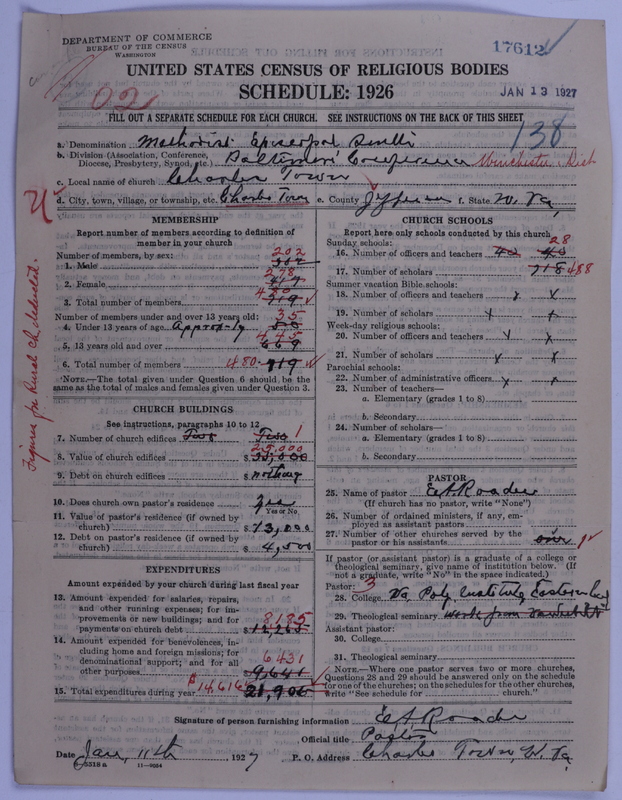 DEPARTMENT OF COMMERCE
BUREAU OF THE CENSUS
WASHINGTON
17612
UNITED STATES CENSUS OF RELIGIOUS BODIES
SCHEDULE: 1926
JAN 13 1927
02
FILL OUT A SEPARATE SCHEDULE FOR EACH CHURCH. SEE INSTRUCTIONS ON THE BACK OF THIS SHEET
138
a. Denomination Methodist Episcopal South
b. Division (Association, Conference, Diocese, Presbytery, Synod, etc.) Baltimore Conference Winchester
c. Local name of church Charles Town
d. City, town, village, or township, etc. Charles Town e. County Jefferson f. State W. Va,
Figures for Rural ch deducted.
MEMBERSHIP
Report number of members according to definition of member in your church
Number of members, by sex:
202
1. Male
278
2. Female
480
3. Total number of members 719
Number of members under and over 13 years old: 35
4. Under 13 years of age Approx-ly 50
445
5. 13 years old and over 669
6. Total number of members 480 719
NOTE.—The total given under Question 6 should be the same as the total of males and females given under Question 3.
CHURCH BUILDINGS
See instructions, paragraphs 10 to 12
7. Number of church edifices Two Two 1
25,000
8. Value of church edifices $
9. Debt on church edifices $ nothing
10. Does church own pastor's residence yes
Yes or No
11. Value of pastor's residence (if owned by church) $ 13,000
12. Debt on pastor's residence (if owned by church) $ 4,500
EXPENDITURES
Amount expended by your church during last fiscal year
13. Amount expended for salaries, repairs, and other running expenses; for improvements or new buildings; and for payments on church debt $ 8185
12,265
14. Amount expended for benevolences, including home and foreign missions; for denominational support; and for all other purposes 6431
9,641
15. Total expenditures during year $14,616 21,906
CHURCH SCHOOLS
Report here only schools conducted by this church
Sunday schools: 28
16. Number of officers and teachers 40 40
17. Number of scholars 718 488
Summer vacation Bible schools:
18. Number of officers and teachers x x
19. Number of scholars x x
Week-day religious schools:
20. Number of officers and teachers x x
21. Number of scholars x x
Parochial schools:
22. Number of administrative officers x x
23. Number of teachers—
a. Elementary (grades 1 to 8)
b. Secondary
24. Number of scholars—
a. Elementary (grades 1 to 8)
b. Secondary
PASTOR
25. Name of pastor E A Roads
(If church has no pastor, write "None")
26. Number of ordained ministers, if any, employed as assistant pastors
27. Number of other churches served by the pastor or his assistants one
If pastor (or assistant pastor) is a graduate of a college or theological seminary, give name of institution below. (If not a graduate, write "No" in the space indicated.)
Pastor: 3
28. College Va, Poly Institute
29. Theological seminary work from Vanderbilt
Assistant pastor:
30. College
31. Theological seminary
NOTE.—Where one pastor serves two or more churches, Questions 28 and 29 should be answered only on the schedule for one of the churches; on the schedules for the other churches, write "See schedule for church."
Signature of person furnishing information E A Roads
Official title Pastor
Date Jan, 11th, 1927 P. O. Address Charles Town, W. Va
8-5518 a 11-9024